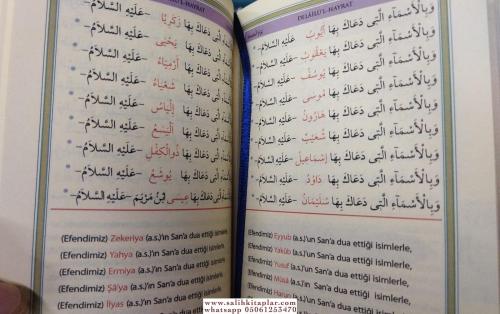 DELÂİLÜ'L-HAYRAT
وَبِالْأَسْمَآءِ الَّتِى دَعَاكَ بِهَا اَيُّوبُ -عَلَيْهِ السَّلَامُ-
وَبِالْأَسْمَآءِ الَّتِى دَعَاكَ بِهَا يَعْقُوبُ -عَلَيْهِ السَّلَامُ-
وَبِالْأَسْمَآءِ الَّتِى دَعَاكَ بِهَا يُوسُفُ -عَلَيْهِ السَّلَامُ-
وَبِالْأَسْمَآءِ الَّتِى دَعَاكَ بِهَا مُوسٰى -عَلَيْهِ السَّلَامُ-
وَبِالْأَسْمَآءِ الَّتِى دَعَاكَ بِهَا هَارُونُ -عَلَيْهِ السَّلَامُ-
وَبِالْأَسْمَآءِ الَّتِى دَعَاكَ بِهَا شُعَيْبُ -عَلَيْهِ السَّلَامُ-
وَبِالْأَسْمَآءِ الَّتِى دَعَاكَ بِهَا اِسْمَاعِيلُ -عَلَيْهِ السَّلَامُ-
وَبِالْأَسْمَآءِ الَّتِى دَعَاكَ بِهَا دَاوُدُ -عَلَيْهِ السَّلَامُ-
وَبِالْأَسْمَآءِ الَّتِى دَعَاكَ بِهَا سُلَيْمَانُ -عَلَيْهِ السَّلَامُ-
(Efendimiz) Eyyub (a.s.)'ın San'a dua ettiği isimlerle,
(Efendimiz) Yakûb (a.s.)'ın San'a dua ettiği isimlerle,
(Efendimiz) Yusuf (a.s.)'ın San'a dua ettiği isimlerle,
(Efendimiz) Mûsâ (a.s.)'ın San'a dua ettiği isimlerle,
(Efendimiz) Harun
دَعَاكَ بِهَا زَكَرِيَّا -عَلَيْهِ السَّلَامُ-
دَعَاكَ بِهَا يَحْيٰى -عَلَيْهِ السَّلَامُ-
دَعَاكَ بِهَا اَرْمِيَآءُ -عَلَيْهِ السَّلَامُ-
دَعَاكَ بِهَا شَعْيَاءُ -عَلَيْهِ السَّلَامُ-
دَعَاكَ بِهَا اِلْيَاسُ -عَلَيْهِ السَّلَامُ-
دَعَاكَ بِهَا اَلْيَسَعُ -عَلَيْهِ السَّلَامُ-
دَعَاكَ بِهَا ذُوالْكِفْلِ -عَلَيْهِ السَّلَامُ-
دَعَاكَ بِهَا يُوشَعُ -عَلَيْهِ السَّلَامُ-
دَعَاكَ بِهَا عِيسَى ابْنُ مَرْيَمَ -عَلَيْهِ السَّلَامُ-
(Efendimiz) Zekeriya (a.s.)'ın San'a dua ettiği isimlerle,
(Efendimiz) Yahya (a.s.)'ın San'a dua ettiği isimlerle,
(Efendimiz) Ermiya (a.s.)'ın San'a dua ettiği isimlerle,
(Efendimiz) Şâ'ya (a.s.)'ın San'a dua ettiği isimlerle,
(Efendimiz) İlyas (a.s.)'ın San'a dua ettiği
www.salihkitaplar.com
whatsapp 05061255470